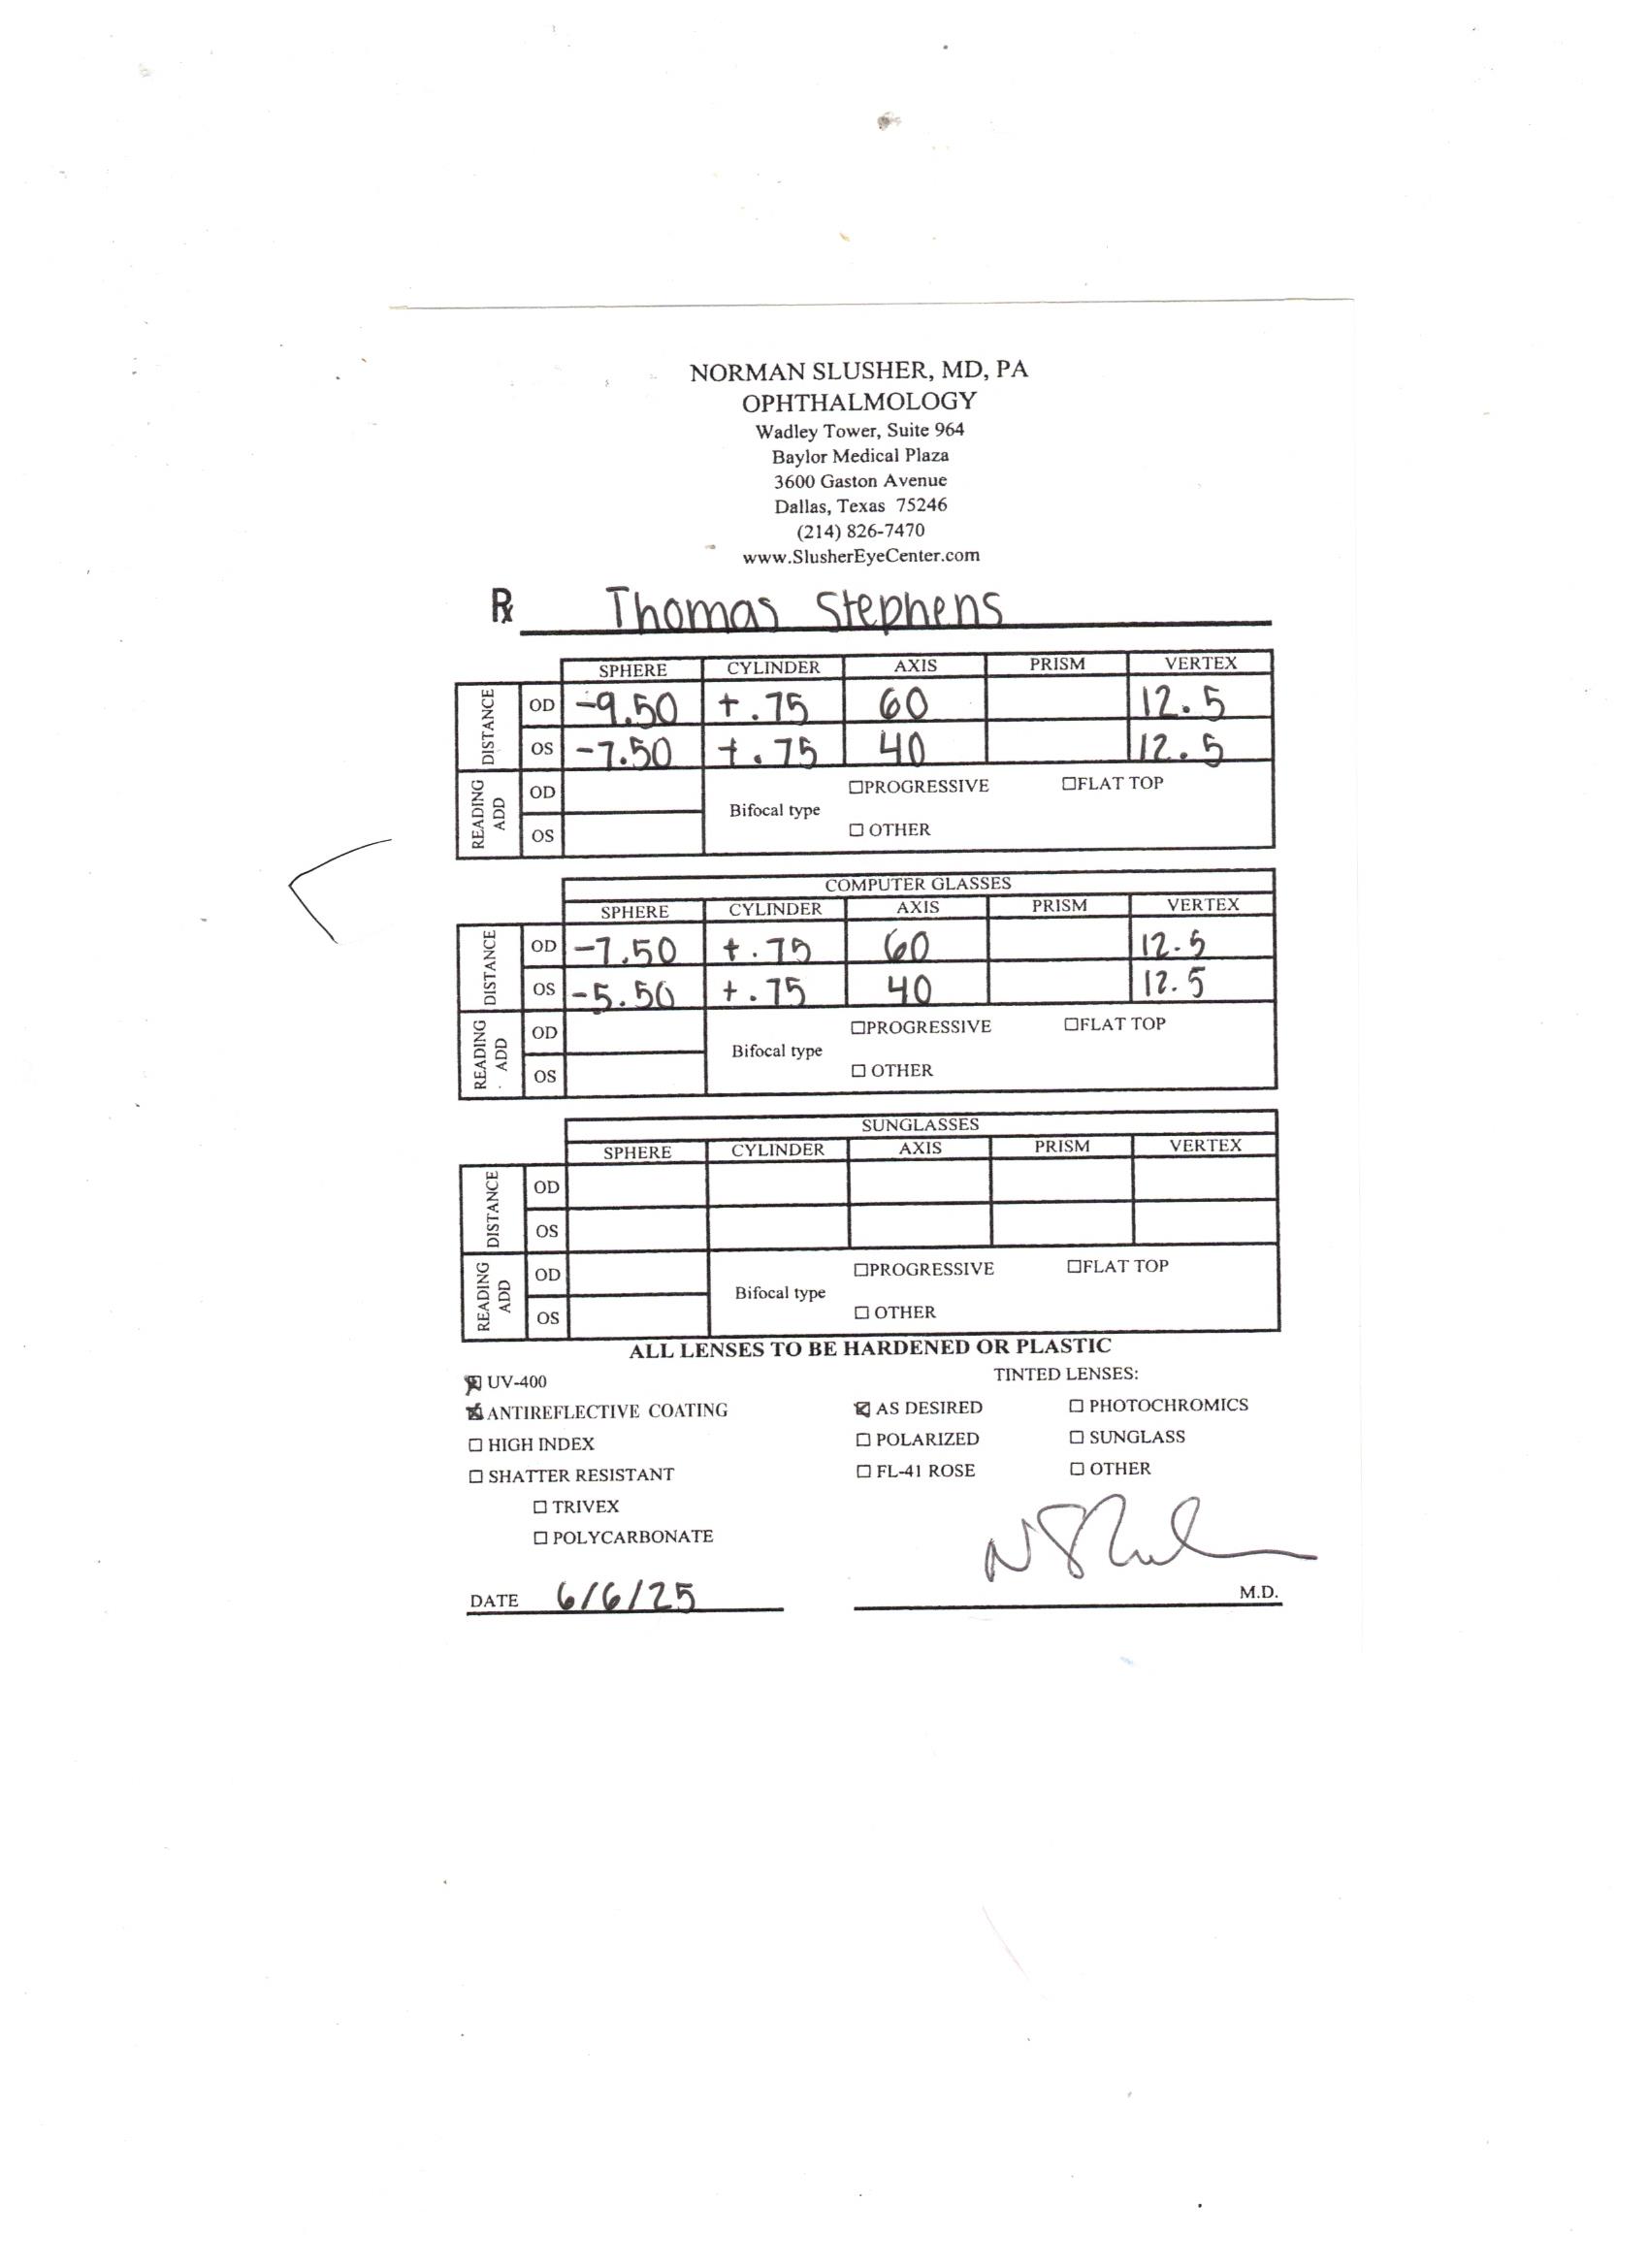 NORMAN SLUSHER, MD, PA
OPHTHALMOLOGY
Wadley Tower, Suite 964
Baylor Medical Plaza
3600 Gaston Avenue
Dallas, Texas 75246
(214) 826-7470
www.SlusherEyeCenter.com
Rx Thomas Stephens
SPHERE CYLINDER AXIS PRISM VERTEX
DISTANCE
OD -9.50 +.75 60 12.5
OS -7.50 +.75 40 12.5
READING ADD
OD
OS
Bifocal type
☐PROGRESSIVE ☐FLAT TOP
☐ OTHER
COMPUTER GLASSES
SPHERE CYLINDER AXIS PRISM VERTEX
DISTANCE
OD -7.50 +.75 60 12.5
OS -5.50 +.75 40 12.5
READING ADD
OD
OS
Bifocal type
☐PROGRESSIVE ☐FLAT TOP
☐ OTHER
SUNGLASSES
SPHERE CYLINDER AXIS PRISM VERTEX
DISTANCE
OD
OS
READING ADD
OD
OS
Bifocal type
☐PROGRESSIVE ☐FLAT TOP
☐ OTHER
ALL LENSES TO BE HARDENED OR PLASTIC
☒ UV-400 TINTED LENSES:
☒ ANTIREFLECTIVE COATING ☒ AS DESIRED ☐ PHOTOCHROMICS
☐ HIGH INDEX ☐ POLARIZED ☐ SUNGLASS
☐ SHATTER RESISTANT ☐ FL-41 ROSE ☐ OTHER
☐ TRIVEX
☐ POLYCARBONATE
DATE 6/6/25 M.D.